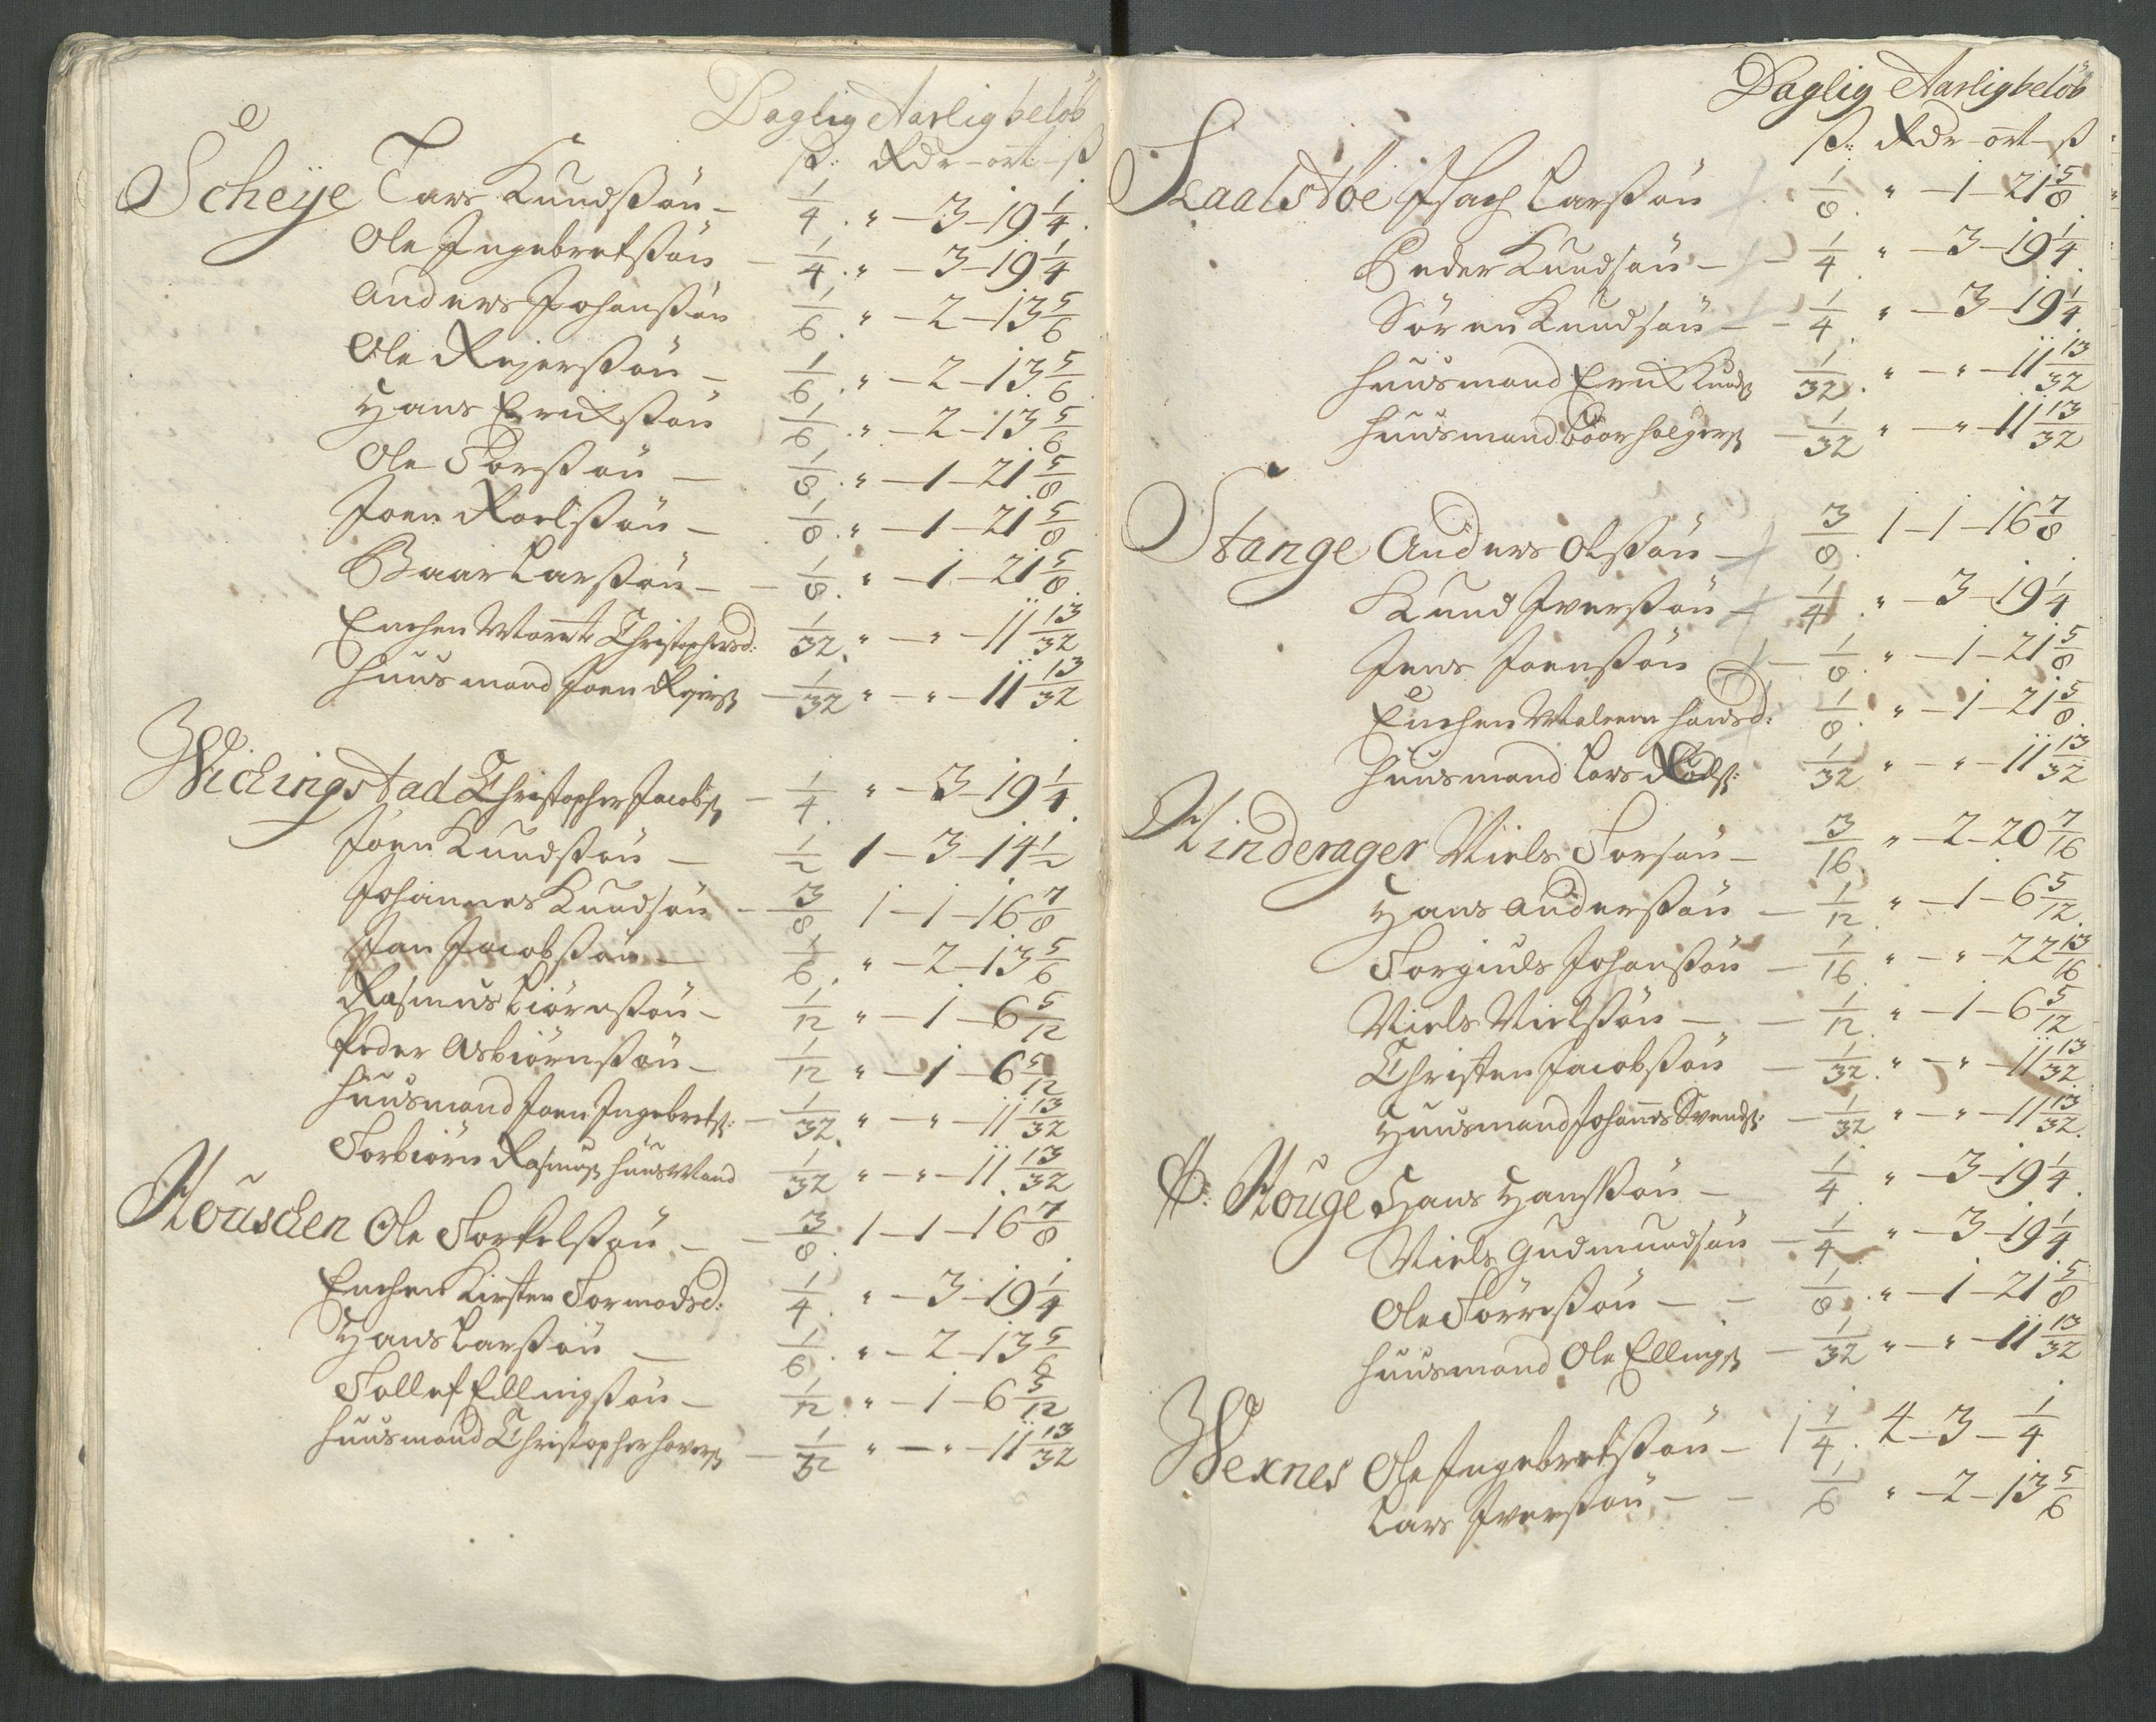 Daglig Aarlig beløb
ß: Rdr - ort - ß
Scheÿe Lars Knudssøn - 1/4 . " - 3 - 19 1/4
Ole Ingebretssøn - 1/4 . " - 3 - 19 1/4
Anders Johanssøn 1/6 . " - 2 - 13 5/6
Ole Rejerssøn - 1/6 . " - 2 - 13 5/6
Hans Erichssøn 1/6 . " - 2 - 13 5/6
Ole Torssøn - 1/8 . " - 1 - 21 5/8
Joen Roelssøn - 1/8 . " - 1 - 21 5/8
Baar Larssøn - 1/8 . " - 1 - 21 5/8
Enchen Christophersd: 1/32 " - " - 11 13/32
Huusmand Joen Rejerß - 1/32 " - " - 11 13/32
Wichingstad Christopher Jacobß - 1/4 . " - 3 - 19 1/4
Joen Knudssøn - 1/2 1 - 3 - 14 1/2
Johannes Knudsøn - 3/8 1 - 1 - 16 7/8
Jan Jacobssøn - 1/6 . " - 2 - 13 5/6
Rasmus Biørnssøn - 1/12 " - 1 - 6 5/12
Peder Asbiørnssøn - 1/12 " - 1 - 6 5/12
Huusmand Joen Ingebretß: - 1/32 " - " - 11 13/32
Torbiørn Rasmusß HuusMand 1/32 " - " - 11 13/32
Houschen Ole Torkelssøn - 3/8 . 1 - 1 - 16 7/8
Enchen Kirsten Tormodsd: 1/4 . " - 3 - 19 1/4
Hans Larssøn - 1/6 . " - 2 - 13 5/6
Tollef Ellingssøn - 1/12 . " - 1 - 6 5/12
Huusmand Christopher Haverß - 1/32 " - " - 11 13/32
Daglig Aarlig beløb
ß: Rdr - ort - ß
Schaalstoe Isach Larssøn 1/8 . " - 1 - 21 5/8
Peder Knudsøn - 1/4 . " - 3 - 19 1/4
Søren Knudsøn - 1/4 . " - 3 - 19 1/4
Huusmand Erich Knudß 1/32 . " - " - 11 13/32
Huusmand Baar Holgerß - 1/32 " - " - 11 13/32
Stange Anders Olssøn - 3/8 . 1 - 1 - 16 7/8
Knud Iverssøn - 1/4 . " - 3 - 19 1/4
Jens Joenssøn - 1/8 . " - 1 - 21 5/8
Enchen Malene Hansd: 1/8 . " - 1 - 21 5/8
Huusmand Lars 1/32 " - " - 11 13/32
Hinderager Niels Torsøn - 3/16 " - 2 - 20 7/16
Hans Anderssøn - 1/12 . " - 1 - 6 5/12
Torgiuls Johanssøn - 1/16 . " - " - 22 13/16
Niels Nielssøn - 1/12 . " - 1 - 6 5/12
Christen Jacobssøn - 1/32 . " - " - 11 13/32
Huusmand Johannes Svendß: - 1/32 " - " - 11 13/32
Houge Hans Hanssøn - 1/4 " - 3 - 19 1/4
Niels Gudmundsøn - 1/4 . " - 3 - 19 1/4
Ole Tørressøn - - 1/8 . " - 1 - 21 5/8
Huusmand Ole Ellingß - 1/32 " - " - 11 13/32
Wexnes Ole Ingebretssøn - 1 1/4 . 4 - 3 - 1/4
Lars Iverssøn - - 1/6 " - 2 - 13 5/6